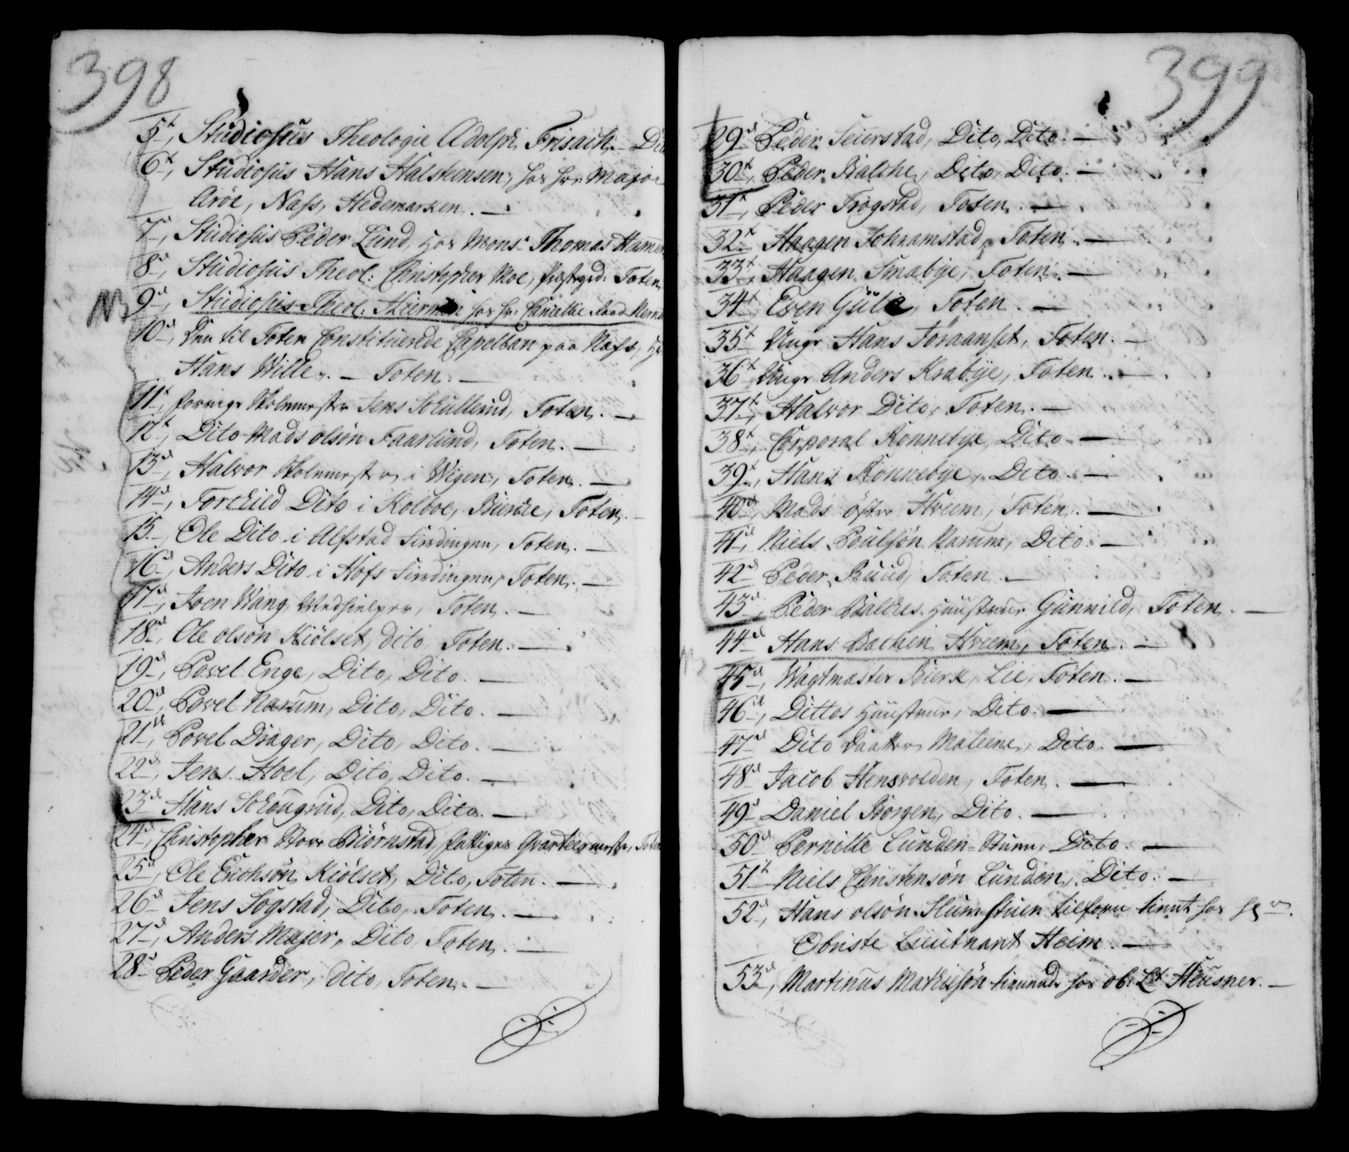 398
5t, Studiosus Theologie Adolph Frisach. - Dit
6t, Studiosus Hans Halstensen, hos hr. Major
Aröe, Nass, Hedemarken. —
7d, Studiosus Peder Lund hos Mons. Thomas Hammer
8d, Studiosus Theol: Christopher Moe, Toten
NB
9d, Studiosus Theol: hos hr. Raad
10d, Den til Toten Constituerede Capellan paa Næss, hr
Hans Wille. — Toten. —
11t, Skolmester Jens Schullerud, Toten. —
12t, Dito Mads olsön Faarlund, Toten. —
13d, Halvor Skolmester i Wigen, Toten. —
14d, Torckild Dito i Kolboe, Toten. —
15, Ole Dito i Alfstad Sindingen, Toten. —
16d, Anders Dito i Hofs Sindingen, Toten. —
17d, Joen Wang Medhielper, Toten. —
18d, Ole olsön Kiölset, dito, Toten. —
19d, Povel Enge, Dito, Dito. —
20d, Povel Narum, Dito, Dito. —
21d, Povel Drager, Dito, Dito. —
22d, Jens Hoel, Dito, Dito. —
23d, Hans Schöugrud, Dito, Dito. —
24d, Christopher Store Biörnstad, fattiges Qvarteermester, Toten
25d, Ole Erichsön Kiölset, Dito, Toten. —
26d, Jens Sogstad, Dito, Toten. —
27d, Anders Majer, Dito, Toten. —
28d, Peder Gaarder, dito, Toten. —
399
29d, Peder Seierstad, Dito, Dito. —
30t, Peder Balche, Dito, Dito. —
31t, Peder Trogstad, Toten. —
32t, Haagen Schramstad, Toten. —
33t, Haagen Smebye, Toten. —
34t, Even Gule, Toten. —
35t, Ungr Hans Foraanset, Toten. —
36t, Ungr Anders Krabye, Toten. —
37t, Halvor Dito, Toten. —
38t, Corporal Konnebye, Dito. —
39t, Hans Konnebye, Dito. —
40d, Mads Hveem, Toten. —
41d, Niels Poulsön Narum, Dito. —
42d, Peder Ruud, Toten. —
43d, Peder Balches Huustrue Gunnild, Toten. —
NB
44d, Hans Bachen Hveem, Toten. —
45d, Wagtmester Lie, Toten. —
46d, Dittos Huustrue, Dito. —
47d, Dito Daatter Malene, Dito. —
48d, Jacob Hensvolden, Toten. —
49d, Daniel Borgen, Dito. —
50d, Pernille Lunden Dito. —
51t, Niels Christensön Lunden, Dito. —
52d, Hans olsön tilforn tient hos hr
Obriste Lieutnant Heim. —
53d, Martinus Mathisön tienende hos ob: Lt: Heusner. —